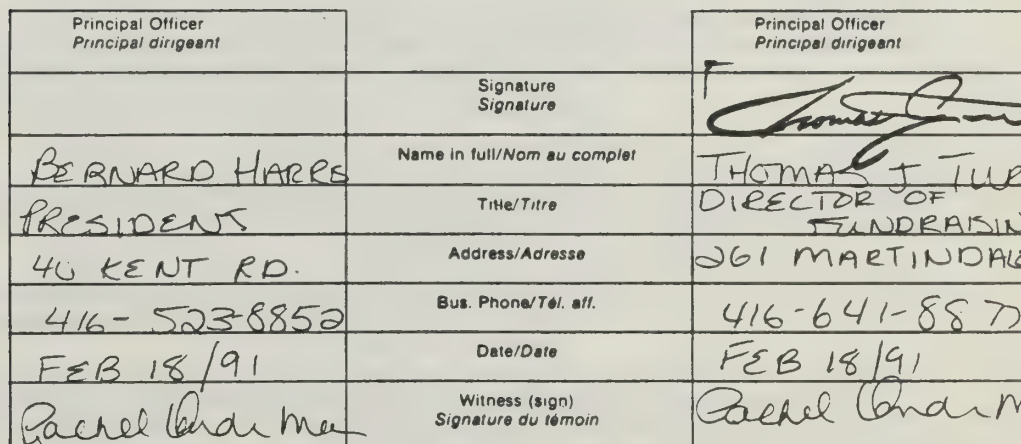 Principal Officer
Principal dirigeant
Principal Officer
Principal dirigeant
Signature
Signature
Thomas
BERNARD HARRE
Name in full/Nom au complet
THOMAS J TUR
PRESIDENT
Title/Titre
DIRECTOR OF
FUNDRAISIN
KENT RD.
Address/Adresse
261 MARTINDALE
416-523-8852
Bus. Phone/Tél. aff.
416-641-887
FEB 18/91
Date/Date
FEB 18/91
Rachel
Witness (sign)
Signature du témoin
Rachel